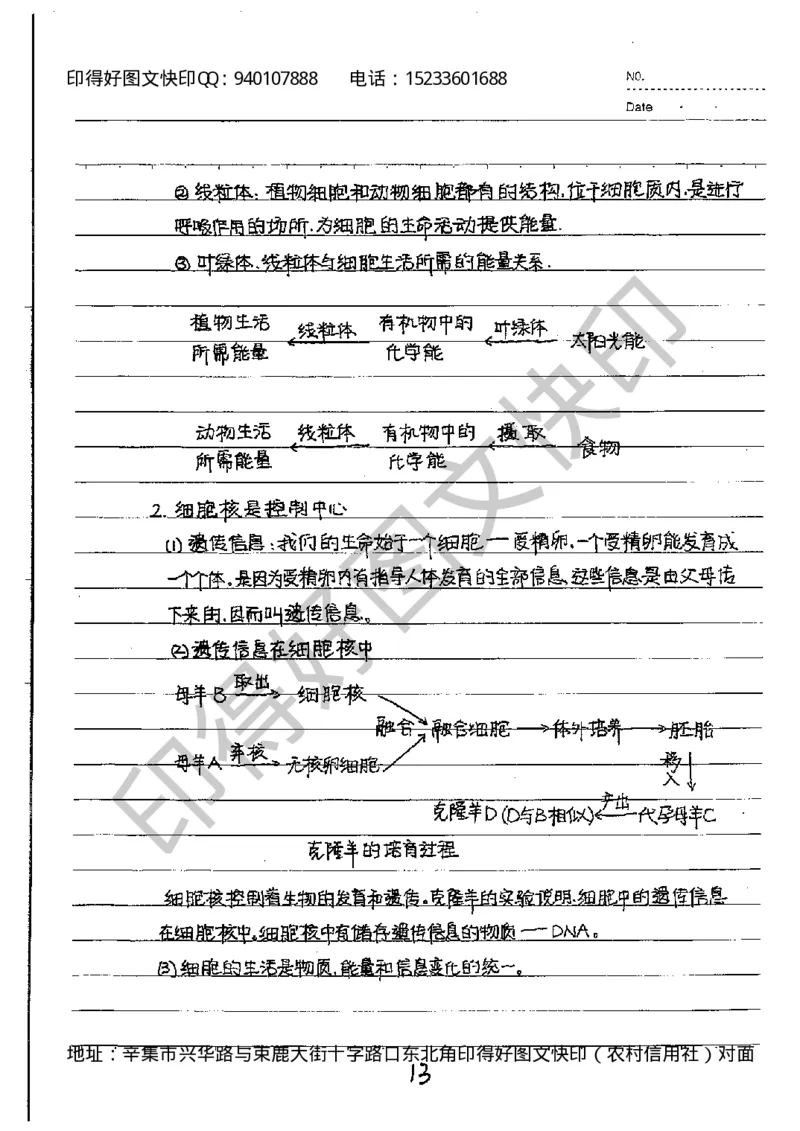 印得好图文快印QQ：940107888 电话：15233601688
NO.
Date
②线粒体：植物细胞和动物细胞都有的结构，位于细胞质内，是进行
呼吸作用的场所，为细胞的生命活动提供能量．
③叶绿体、线粒体与细胞生活所需的能量关系．
植物生活 线粒体 有机物中的 叶绿体 太阳光能
所需能量 化学能
动物生活 线粒体 有机物中的 摄取 食物
所需能量 化学能
2. 细胞核是控制中心
(1)遗传信息：我们的生命始于一个细胞一受精卵，一个受精卵能发育成
一个个体，是因为受精卵内有指导人体发育的全部信息，这些信息是由父母传
下来的，因而叫遗传信息。
(2)遗传信息在细胞核中
母羊B 取出 细胞核
融合 融合细胞 体外培养 胚胎
母羊A 弃核 无核卵细胞
移入
克隆羊D(D与B相似) 产出 代孕母羊C
克隆羊的培育过程
细胞核控制着生物的发育和遗传。克隆羊的实验说明，细胞中的遗传信息
在细胞核中。细胞核中有储存遗传信息的物质一DNA。
(3)细胞的生活是物质、能量和信息变化的统一。
地址：辛集市兴华路与束鹿大街十字路口东北角印得好图文快印（农村信用社）对面
13
印得好图文快印